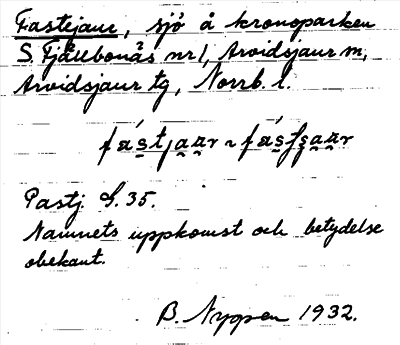 Fastejaur, sjö å kronoparken
S. Fjällbonäs nr 1, Arvidsjaur sn,
Arvidsjaur tg, Norrb. l.
Pastj. S. 35.
Namnets uppkomst och betydelse
obekant.
B. Nygren 1932.